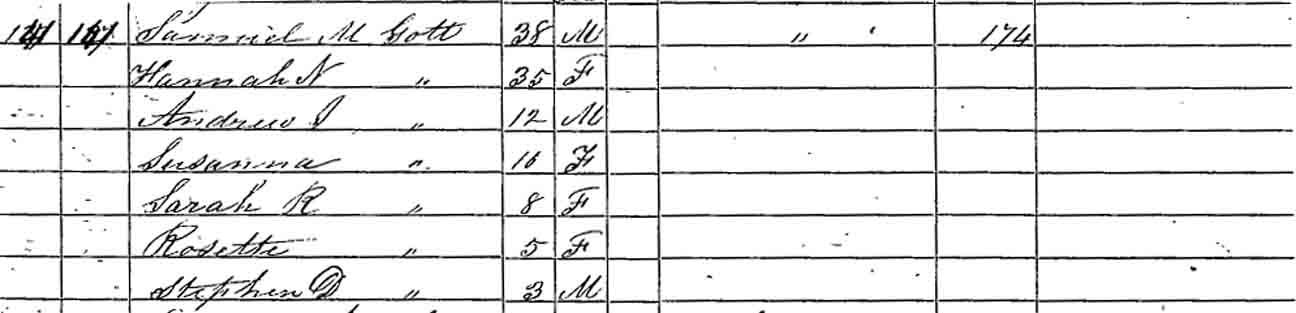 Samuel M Gott 38 M " " 174
Hannah N " 35 F
Andrew J " 12 M
Susanna " 10 F
Sarah R " 8 F
Rosette " 5 F
Stephen D " 3 M